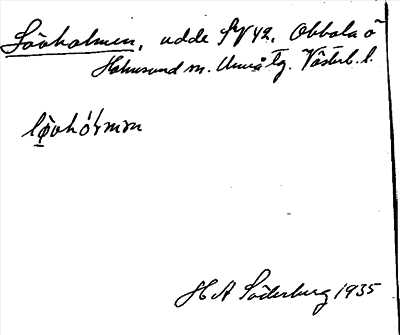 Lövholmen, udde SV 42. Obbola ö
Holmsund sn. Umeå Tg. Västerb. l.
løvhólmən
H A Söderberg 1935